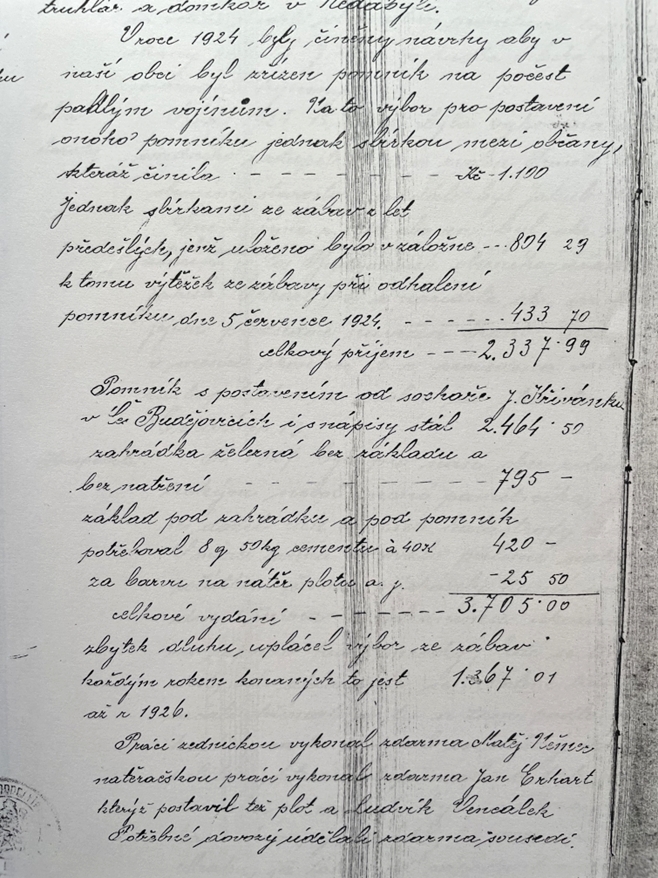 truhlář a domkář v Nedabyli.
Vroce 1924 byly činěny návrhy aby v
naší obci byl zřízen pomník na počest
padlým vojínům. Na to výbor pro postavení
onoho pomníku jednak sbírkou mezi občany,
kteráž činila - - - - - - - Kč 1.100
Jednak sbírkami ze zábav z let
předešlých, jenž uloženo bylo v záložně - - - 804 29
k tomu výtěžek ze zábavy při odhalení
pomníku dne 5 července 1924. - - - - - - - 433 70
celkový příjem - - - - 2.337.99
Pomník s postavením od sochaře J. Křivánka
v Čes Budějovicích i s nápisy stál 2.464.50
zahrádka železná bez základu a
bez natření - - - - - - - - 795 -
základ pod zahrádku a pod pomník
potřeboval 8 q 50 kg cementu à 40 Kč 420 -
za barvu na nátěr plotu a. j. - 25 50
celkové vydání - - - - - - - 3.705.00
zbytek dluhu, uplácel výbor ze zábav
každým rokem konaných to jest 1.367.01
až r 1926.
Práci zednickou vykonal zdarma Matěj Němec
natěračskou práci vykonal zdarma Jan Erhart
kterýž postavil též plot a Ludvík Vencálek
Potřebné dovozy udělali zdarma sousedi.